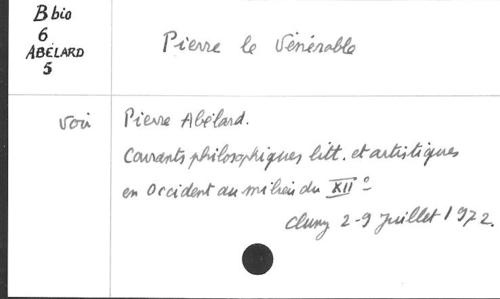 B bio
6
ABÉLARD
5
Pierre le Vénérable
voir
Pierre Abélard.
Courants philosophiques litt. et artistiques
en Occident au milieu du XIIe
Cluny 2-9 juillet 1972.